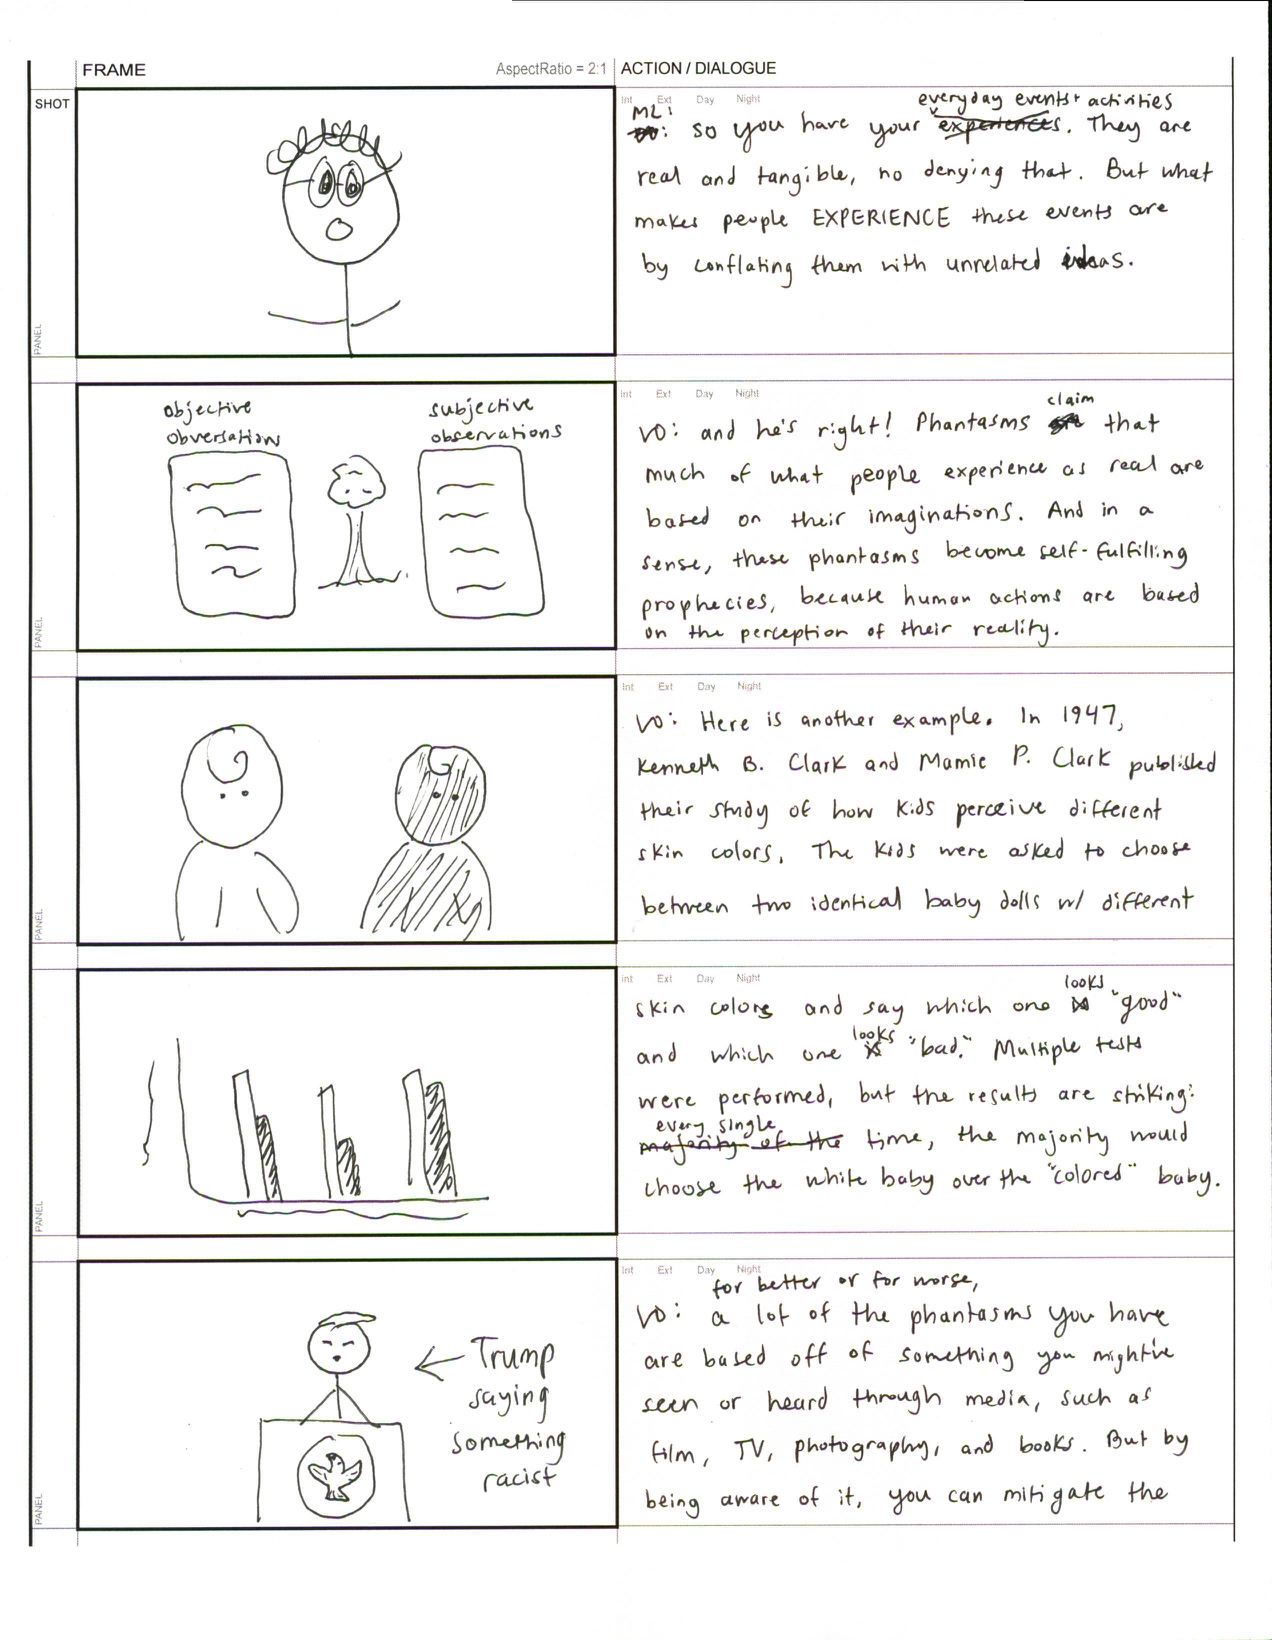 FRAME
AspectRatio = 2:1
ACTION / DIALOGUE
SHOT
Int Ext Day Night
everyday events + activities
ML:
so you have your experiences. They are
real and tangible, no denying that. But what
makes people EXPERIENCE these events are
by conflating them with unrelated ideas.
PANEL
objective
obversations
subjective
observations
Int Ext Day Night
claim
VO: and he's right! Phantasms that
much of what people experience as real are
based on their imaginations. And in a
sense, these phantasms become self-fulfilling
prophecies, because human actions are based
on the perception of their reality.
PANEL
Int Ext Day Night
VO: Here is another example. In 1947,
Kenneth B. Clark and Mamie P. Clark published
their study of how kids perceive different
skin colors. The kids were asked to choose
between two identical baby dolls w/ different
PANEL
Int Ext Day Night
looks
skin colors and say which one is "good"
looks
and which one is "bad." Multiple tests
were performed, but the results are striking:
every single
majority of the time, the majority would
choose the white baby over the "colored" baby.
PANEL
Trump
saying
something
racist
Int Ext Day Night
for better or for worse,
VO: a lot of the phantasms you have
are based off of something you might've
seen or heard through media, such as
film, TV, photography, and books. But by
being aware of it, you can mitigate the
PANEL